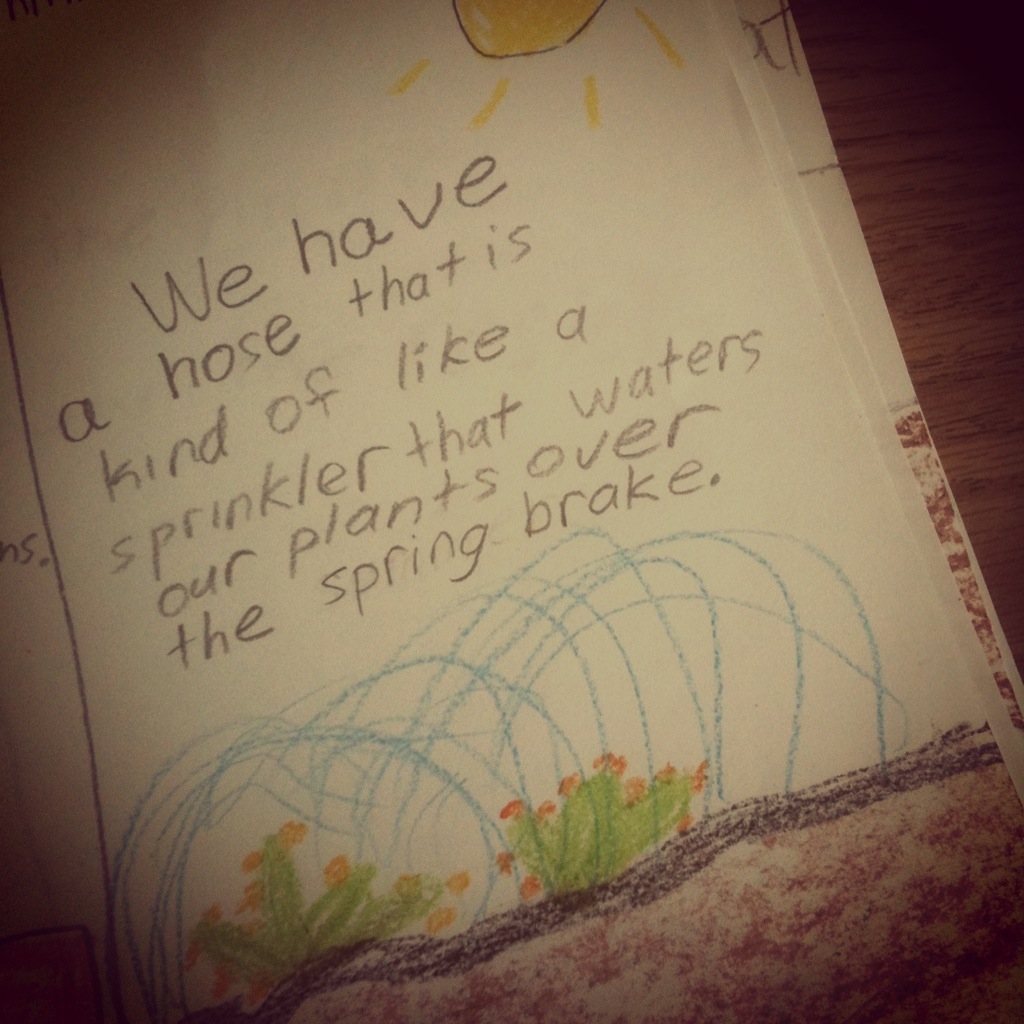 We have
a hose that is
kind of like a
sprinkler that waters
our plants over
the spring brake.
ns.
at